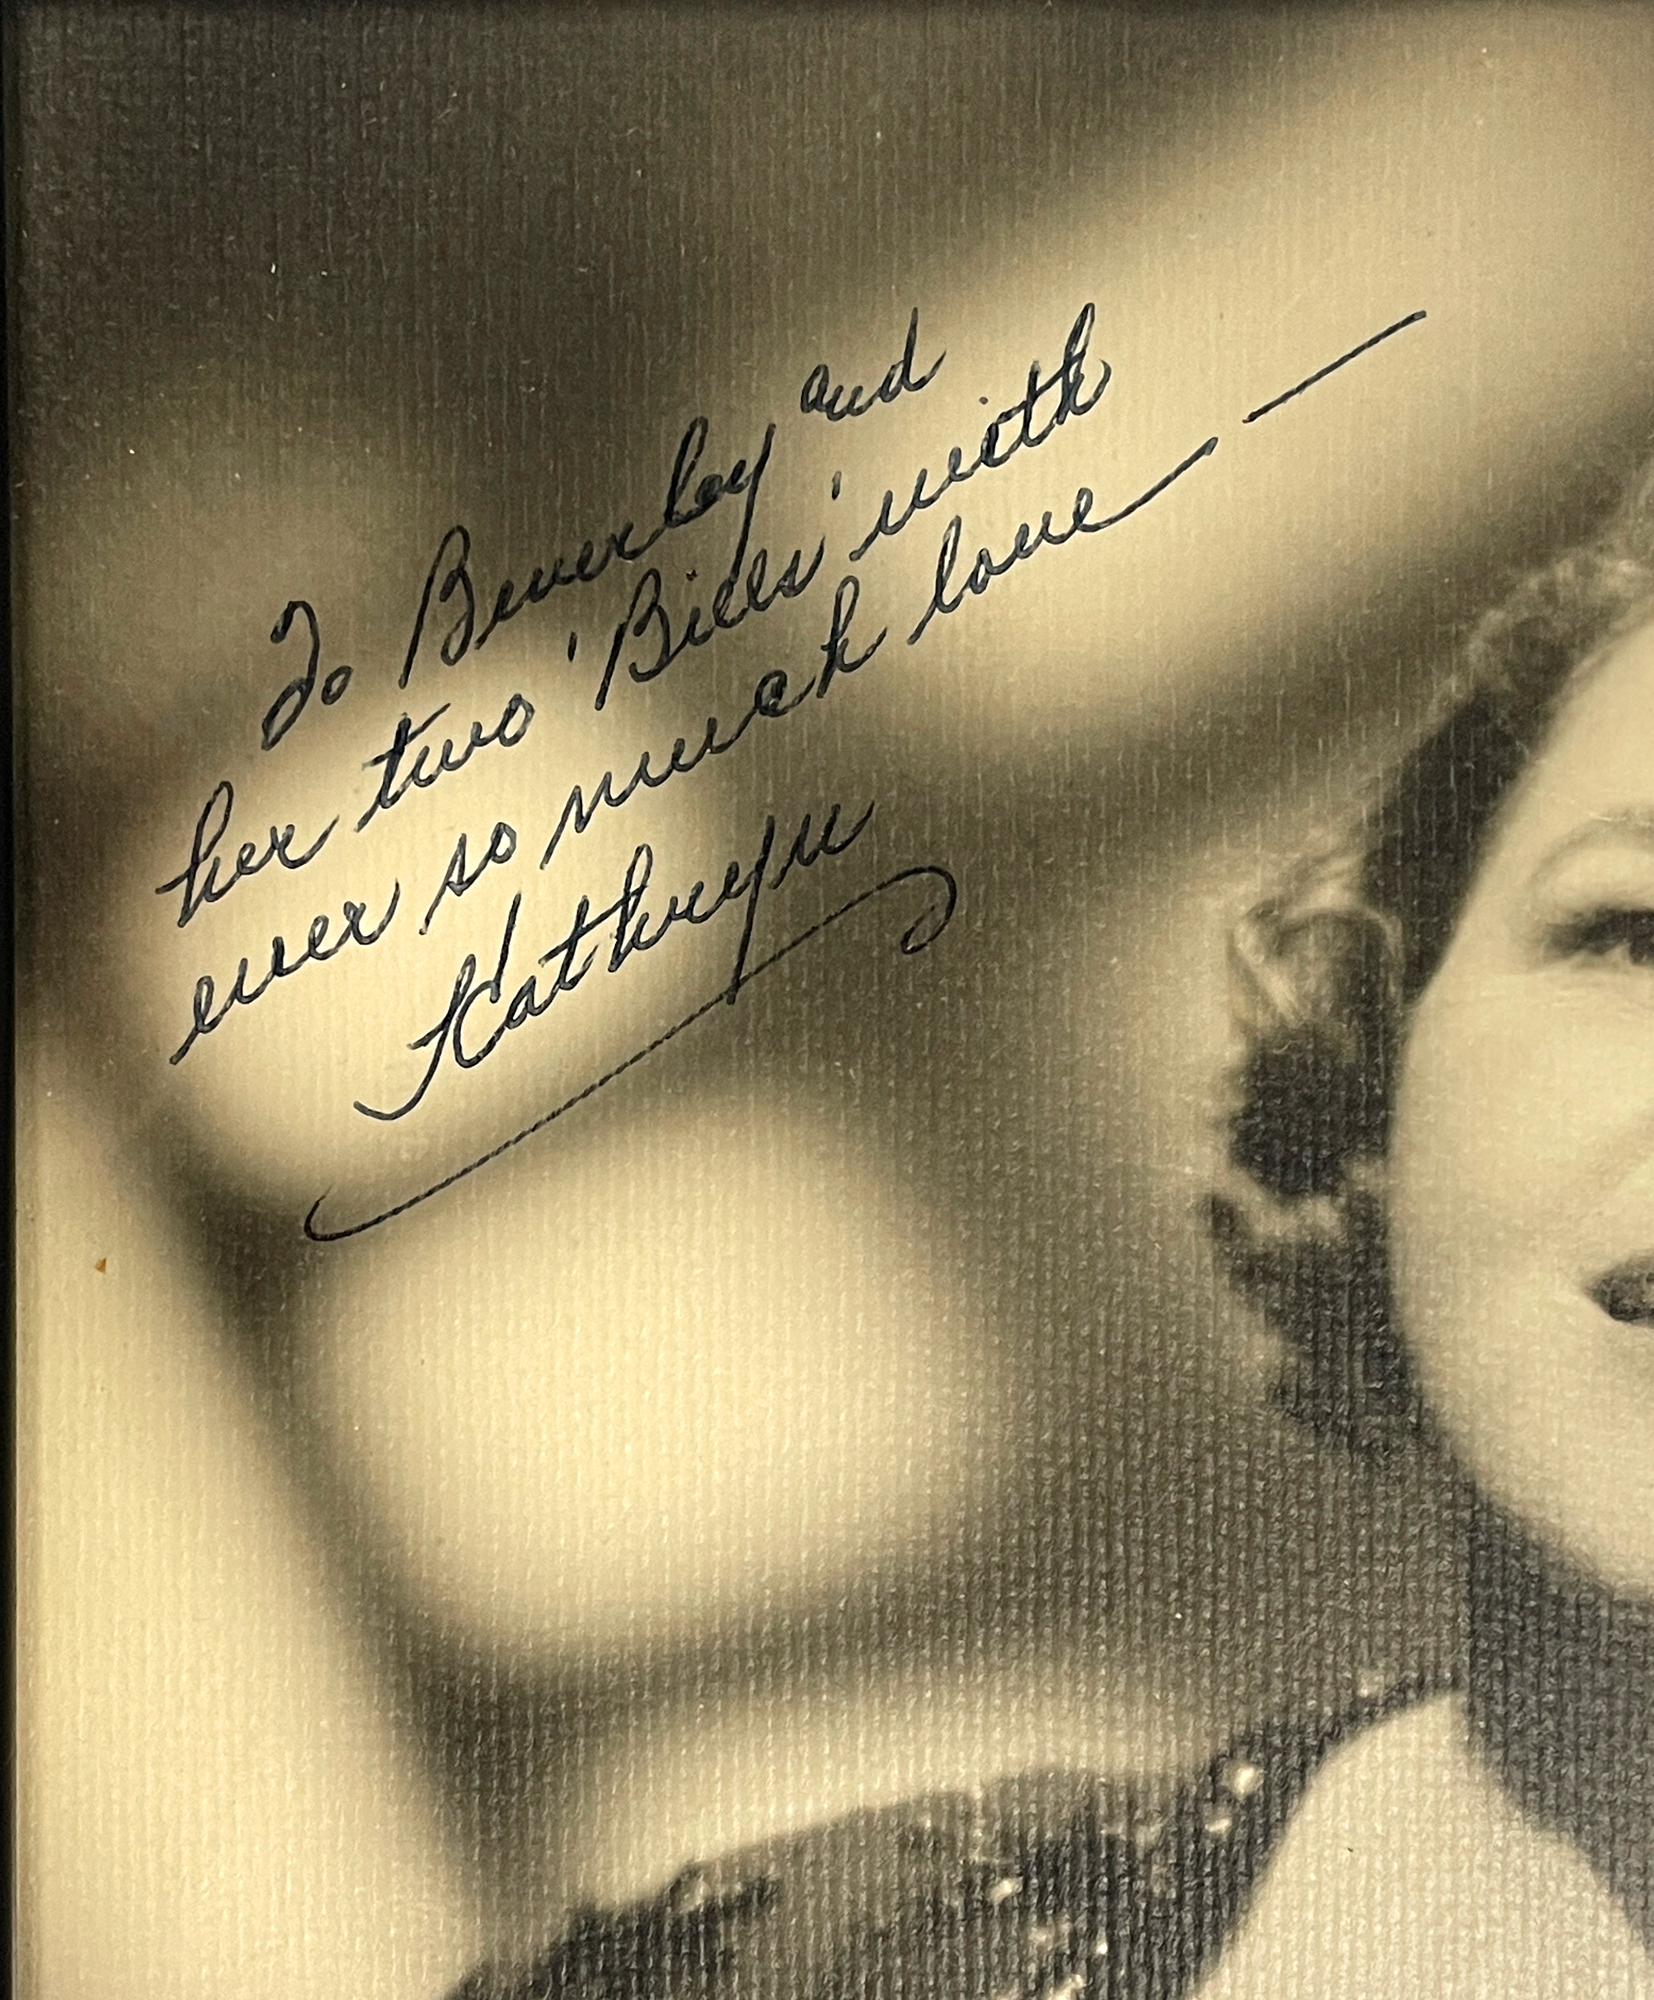 To Beverley and
her two 'Bills' with
ever so much love —
Kathryn